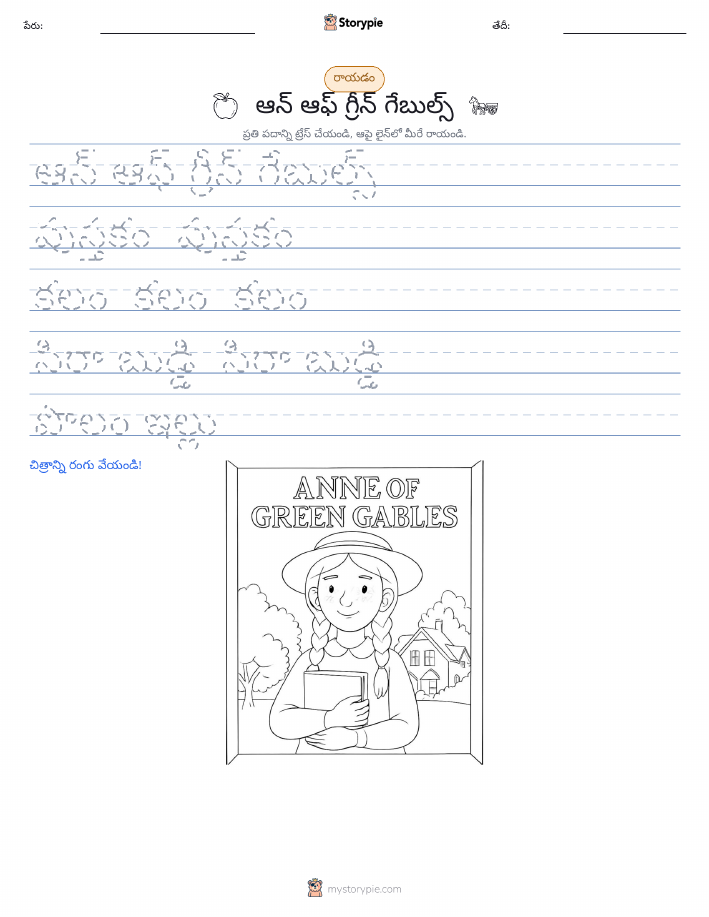 పేరు:
Storypie
తేదీ:
రాయడం
ఆన్ ఆఫ్ గ్రీన్ గేబుల్స్
ప్రతి పదాన్ని ట్రేస్ చేయండి, ఆపై లైన్‌లో మీరే రాయండి.
ఆన్ ఆఫ్ గ్రీన్ గేబుల్స్
పుస్తకం పుస్తకం
కలం కలం కలం
సిరా బుడ్డి సిరా బుడ్డి
పొలం ఇల్లు
చిత్రాన్ని రంగు వేయండి!
ANNE OF
GREEN GABLES
mystorypie.com